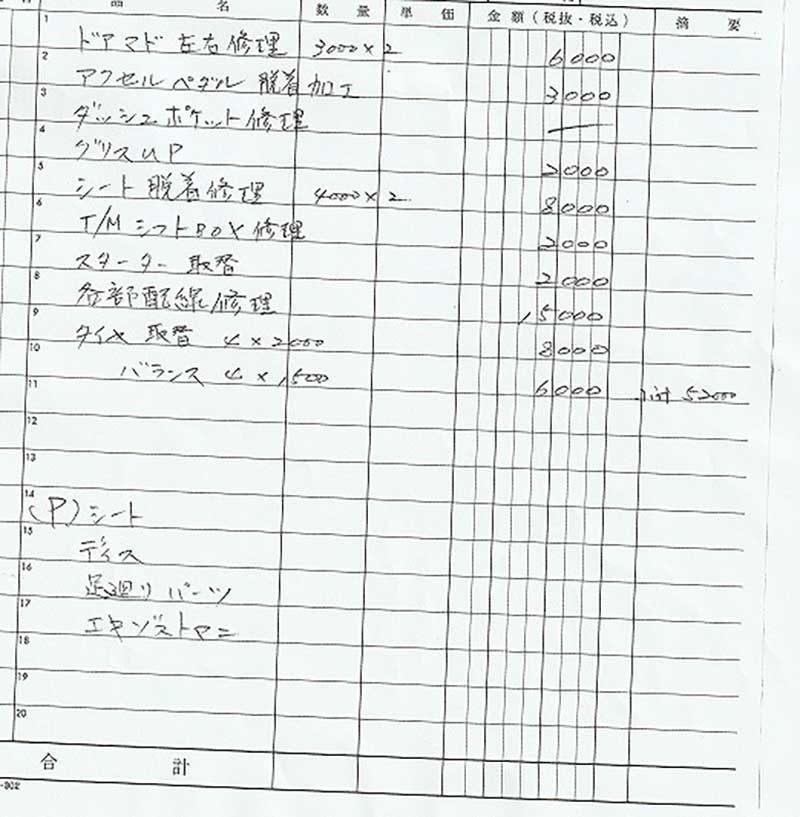 品 名 数 量 単 価 金 額 (税抜・税込) 摘 要
1 ドアマド 左右修理 3000×2 6000
2 アクセルペダル 脱着加工 3000
3 ダッシュポケット修理 —
4 グリスUP 2000
5 シート脱着修理 4000×2 8000
6 T/MシフトBOX修理 2000
7 スターター 取替 2000
8 各部配線修理 15000
9 タイヤ 取替 4×2000 8000
10 バランス 4×1500 6000 小計 52000
11
12
13
14 (P)シート
15 ディス
16 足廻りパーツ
17 エキゾストマニ
18
19
20
合 計
-302